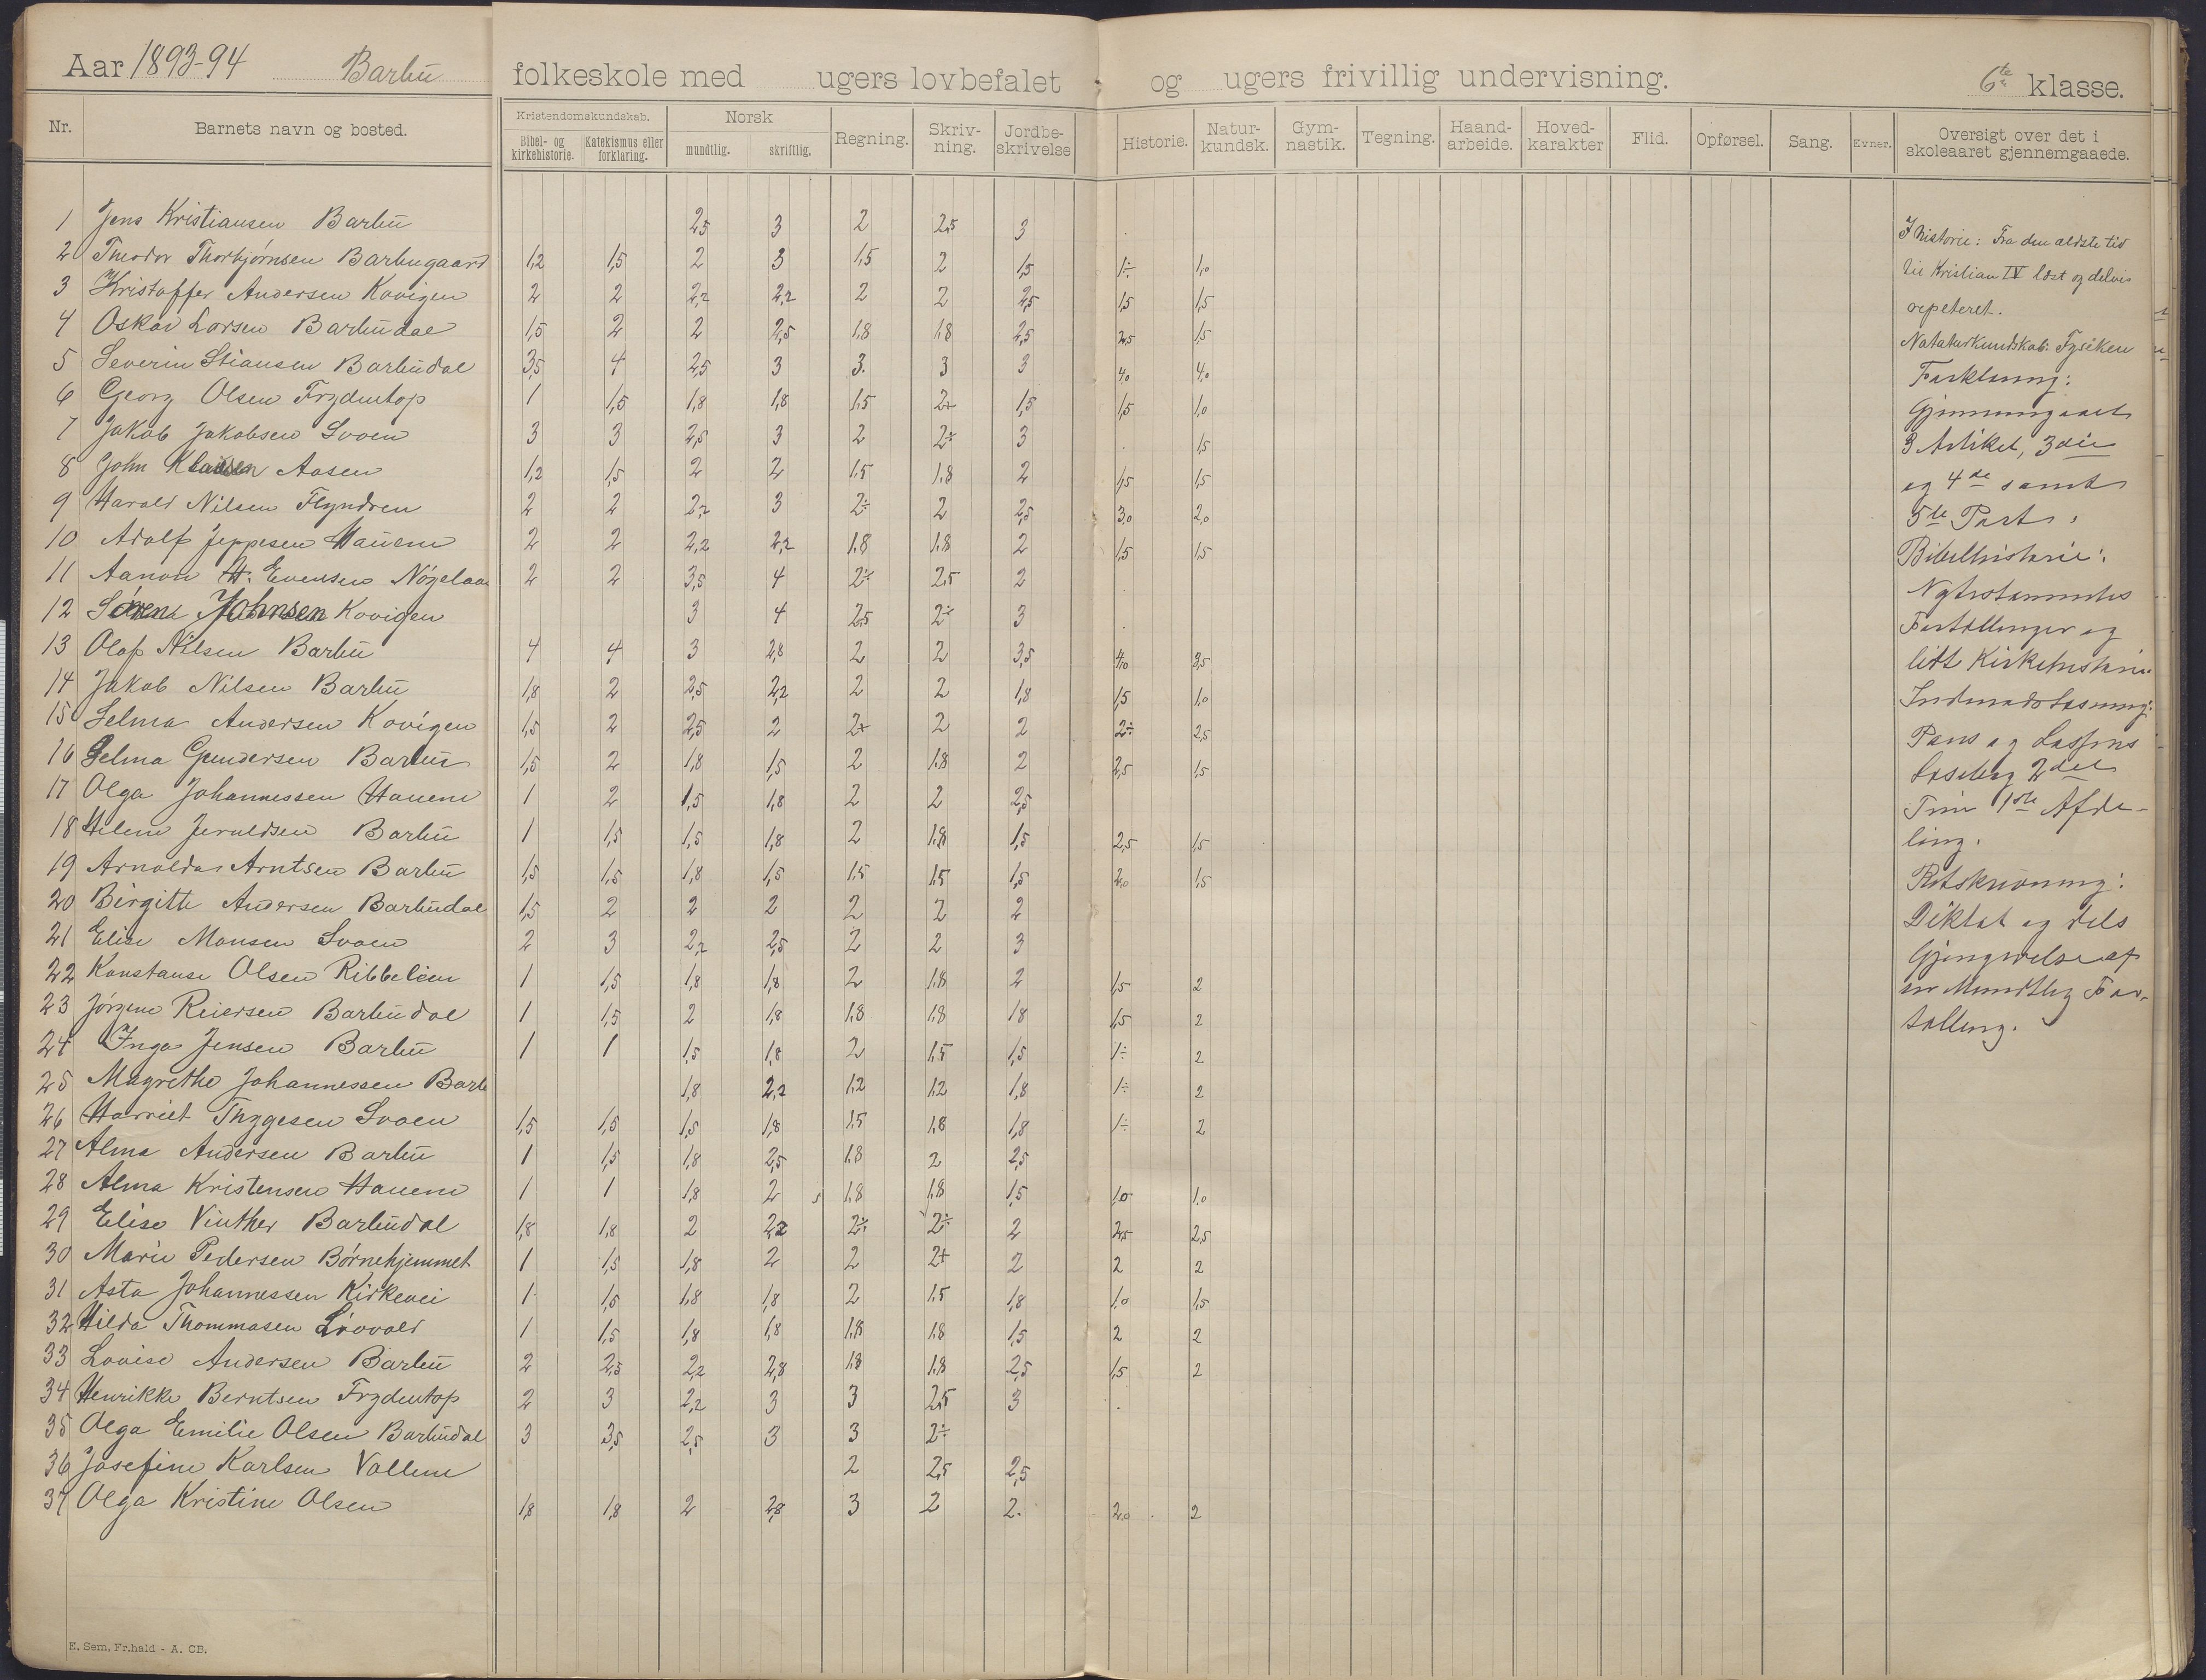 Aar 1893-94 Barbu folkeskole med ugers lovbefalet og ugers frivillig undervisning. 6te klasse.
Nr. Barnets navn og bosted. Kristendomskundskab. Bibel- og kirkehistorie. Katekismus eller forklaring. Norsk mundtlig. skriftlig. Regning. Skriv-ning. Jordbe-skrivelse Historie. Natur-kundsk. Gym-nastik. Tegning. Haand-arbeide. Hoved-karakter Flid. Opførsel. Sang. Evner. Oversigt over det i skoleaaret gjennemgaaede.
1 Jens Kristiansen Barbu 2,5 3 2 2,5 3
2 Theodor Thorbjørnsen Barbugaard 1,2 1,5 2 3 1,5 2 1,5 1÷ 1,0
3 Kristoffer Andersen Kovigen 2 2 2,2 2,2 2 2 2,5 1,5 1,5
4 Oskar Larsen Barbudal 1,5 2 2 2,5 1,8 1,8 2,5 2,5 1,5
5 Severin Stiansen Barbudal 3,5 4 2,5 3 3. 3 3 4,0 4,0
6 Georg Olsen Frydentop 1 1,5 1,8 1,8 1,5 2+ 1,5 1,5 1,0
7 Jakob Jakobsen Svoen 3 3 2,5 3 2 2÷ 3 1,5
8 John Klausen Aasen 1,2 1,5 2 2 1,5 1,8 2 1,5 1,5
9 Harald Nilsen Flyndren 2 2 2,2 3 2÷ 2 2,5 3,0 2,0
10 Adolf Jeppesen Hauene 2 2 2,2 2,2 1,8 1,8 2 1,5 1,5
11 Aanon H. Evensen 2 2 3,5 4 2÷ 2,5 2
12 Johnsen Kovigen 3 4 2,5 2÷ 3
13 Olaf Nilsen Barbu 4 4 3 2,8 2 2 3,5 4,0 3,5
14 Jakob Nilsen Barbu 1,8 2 2,5 2,2 2 2 1,8 1,5 1,0
15 Selma Andersen Kovigen 1,5 2 2,5 2 2+ 2 2 2÷ 2,5
16 Selma Gundersen Barbu 1,5 2 1,8 1,5 2 1,8 2 2,5 1,5
17 Olga Johannessen Hauene 1 2 1,5 1,8 2 2 2,5
18 Helene Jeraldsen Barbu 1 1,5 1,5 1,8 2 1,8 1,5 2,5 1,5
19 Arnolda Arntsen Barbu 1,5 1,5 1,8 1,5 1,5 1,5 1,5 2,0 1,5
20 Birgitte Andersen Barbudal 1,5 2 2 2 2 2 2
21 Elise Monsen Svoen 2 3 2,2 2,5 2 2 3
22 Konstanse Olsen Ribbelien 1 1,5 1,8 1,8 2 1,8 2 1,5 2
23 Jørgine Reiersen Barbudal 1 1,5 2 1,8 1,8 1,8 1,8 1,5 2
24 Inga Jensen Barbu 1 1 1,5 1,8 2 1,5 1,5 1÷ 2
25 Magrethe Johannessen Barb 1,8 2,2 1,2 1,2 1,8 1÷ 2
26 Harriet Thygesen Svoen 1,5 1,5 1,5 1,8 1,5 1,8 1,8 1÷ 2
27 Alma Andersen Barbu 1 1,5 1,8 2,5 1,8 2 2,5
28 Alma Kristensen Hauene 1 1 1,8 2 1,8 1,8 1,5 1,0 1,0
29 Elise Vinther Barbudal 1,8 1,8 2 2,2 2÷ 2÷ 2 2,5 2,5
30 Marie Pedersen Børnehjemmet 1 1,5 1,8 2 2 2+ 2 2 2
31 Asta Johannessen Kirkevei 1 1,5 1,8 1,8 2 1,5 1,8 1,0 1,5
32 Hilda Thommasen Løvold 1 1,5 1,8 1,8 1,8 1,8 1,5 2 2
33 Lovise Andersen Barbu 2 2,5 2,2 2,8 1,8 1,8 2,5 1,5 2
34 Henrikke Berntsen Frydentop 2 3 2,2 3 3 2,5 3
35 Olga Emilie Olsen Barbudal 3 3,5 2,5 3 3 2÷
36 Josefine Karlsen Vollene 2 2,5 2,5
37 Olga Kristine Olsen 1,8 1,8 2 2,8 3 2 2. 2,0 2
I historie: Fra den ældste tid
til Kristian IV læst og delvis
repeteret.
Nataturkundskab: Fysiken
Forklaring:
Gjennemgaaet
3 Artikel, 3die
og 4de samt
5te Part.
Bibelhistorie:
Nytestamentes
Fortællinger og
lidt Kirkehistorie.
Indenadslæsning:
Pauss og Lassens
Læsebog 2det
Trin 1ste Afde-
ling.
Retskrivning:
Diktat og dels
Gjengivelse af
en Mundtlig For-
tælling.
E. Sem, Fr.hald - A. CB.